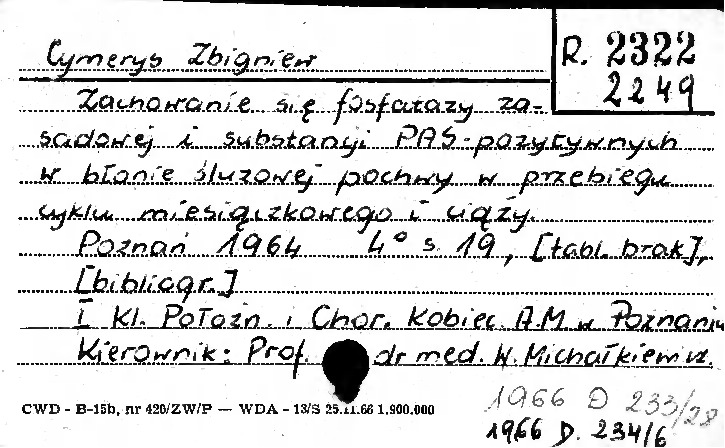 Cymerys Zbigniew
R. 2322
2249
Zachowanie się fosfatazy za-
sadowej i substancji PAS-pozytywnych
w błonie śluzowej pochwy w przebiegu
cyklu miesiączkowego i ciąży.
Poznań 1964 4° s. 19, [tabl. brak],
[bibliogr.]
I Kl. Położn. i Chor. Kobiec. A.M. w Poznaniu
Kierownik: Prof. dr med. W. Michałkiewicz.
CWD - B-15b, nr 426/ZW/P — WDA - 13/S 25.11.66 1.900.000
1966 D 233/28
1966 D. 234/6